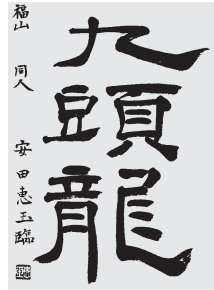 九頭龍
福山 同人 安田恵玉臨